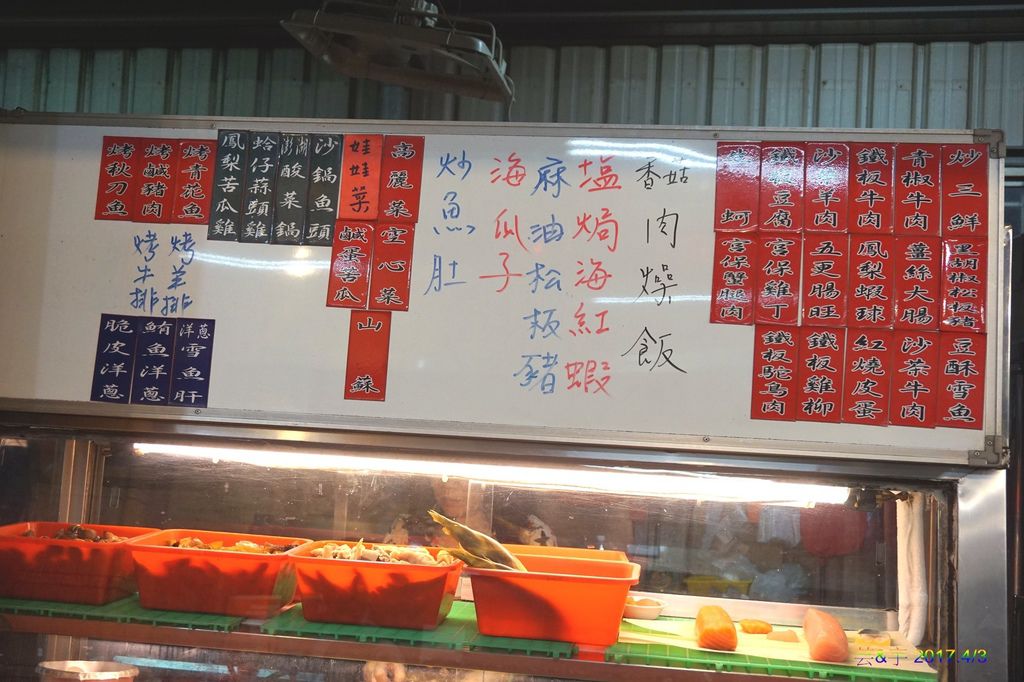 炒三鮮
青椒牛肉
鐵板牛肉
沙茶羊肉
鐵板豆腐
黑胡椒松板豬
薑絲大腸
鳳梨蝦球
五更腸旺
宮保雞丁
宮保蟹腿肉
豆酥雪魚
沙茶牛肉
紅燒皮蛋
鐵板雞柳
鐵板鴕鳥肉
香菇肉燥飯
塩焗海紅蝦
麻油松板豬
海瓜子
炒魚肚
高麗菜
娃娃菜
空心菜
鹹蛋苦瓜
山蘇
沙鍋魚頭
澎湖酸菜鍋
蛤仔蒜頭雞
鳳梨苦瓜雞
烤青花魚
烤鹹豬肉
烤秋刀魚
烤羊排
烤牛排
洋蔥雪魚肝
鮪魚洋蔥
脆皮洋蔥
2017.4/3